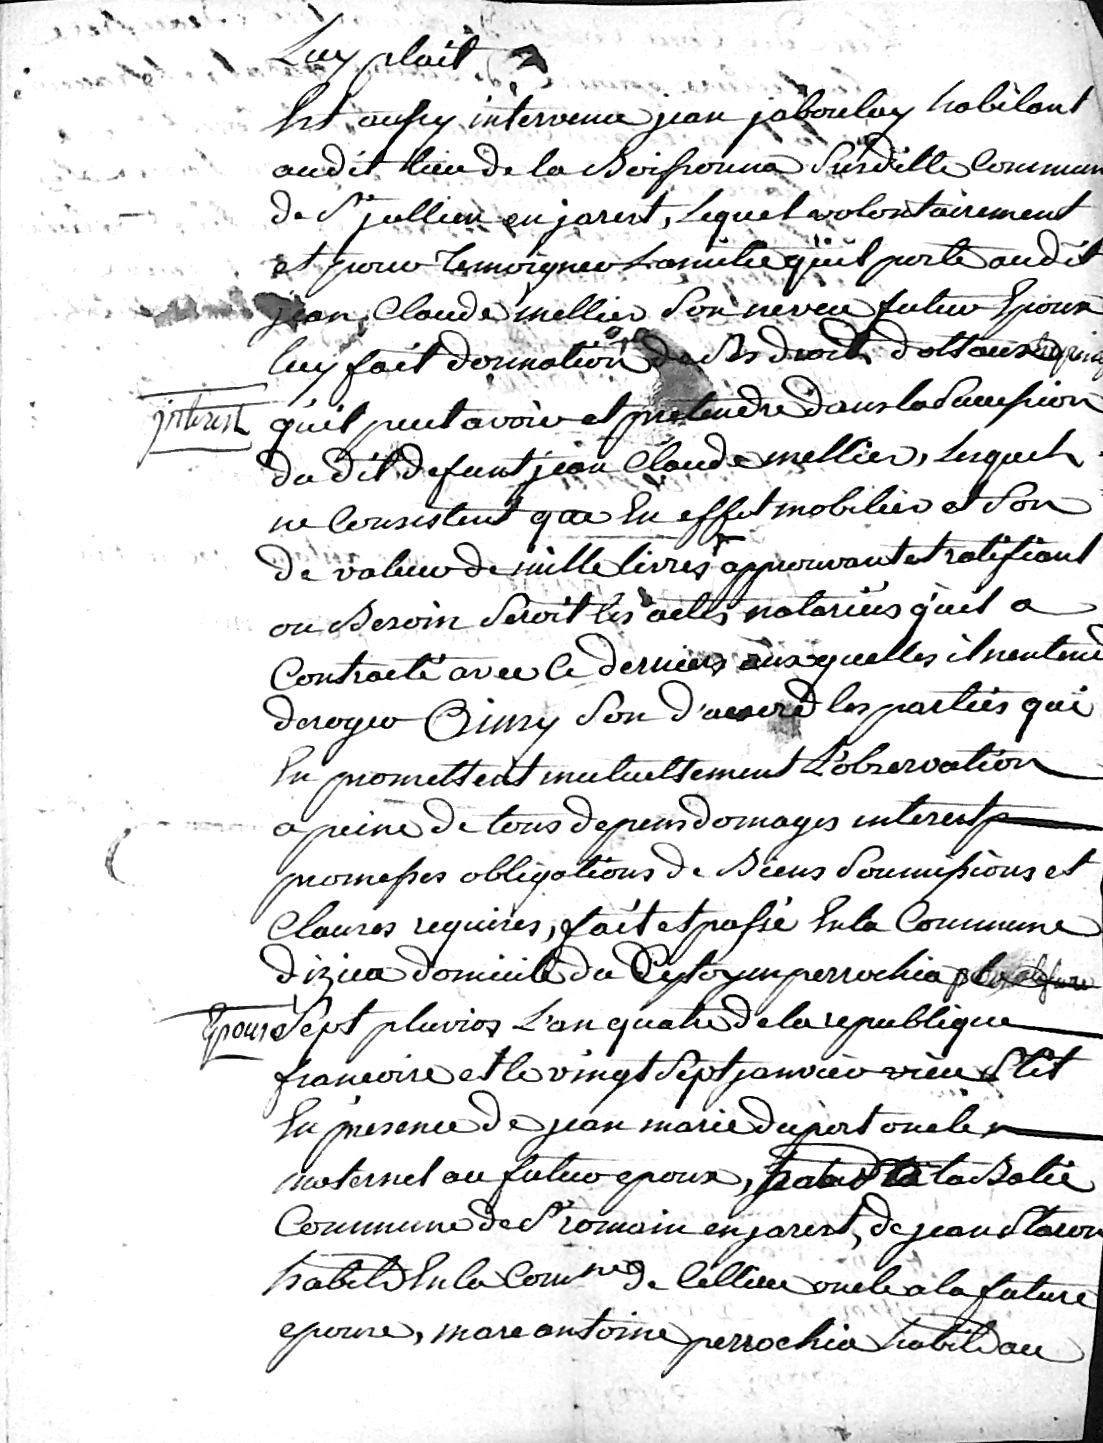 Luy plait
Est aussy intervenu jean jaboulay habitant
audit lieu de la Boissonna Susditte Commun
de St jullien en jarest, Lequel volontairement
et pour temoigner L'amitié qu'il porte audit
jean Claude mellier Son neveu futur Epoux
luy fait donnation de Ses droits
interest
qu'il peut avoir et pretendre dans la Succession
du dit defunt jean Claude mellier, Lesquels
ne Consistent que En effet mobilier et Son
de valeur de mille livres approuvant et ratifiant
ou Besoin Seroit les actes notariés qu'il a
Contracté avec le derniers auxquelles il n'entend
deroger Ainsy Son d'acord les parties qui
En promettent mutuellement L'observation
a peine de tous depens domages interests
promesses obligations de Biens Soumissions et
Clauses requises, fait et passé En la Commune
d'izieu domicile du Citoyen perrochia
Epouse
Sept pluvios L'an quatre de la republique
francoise et le vingt Sept janvier vieu Stil
En presence de jean marie duport oncle
maternel au futur epoux, la Batie
Commune de St romain en jarest, de jean Staron
habitt En la Comne de Cellieu oncle a la future
epouse, marc antoine perrochia habitt au